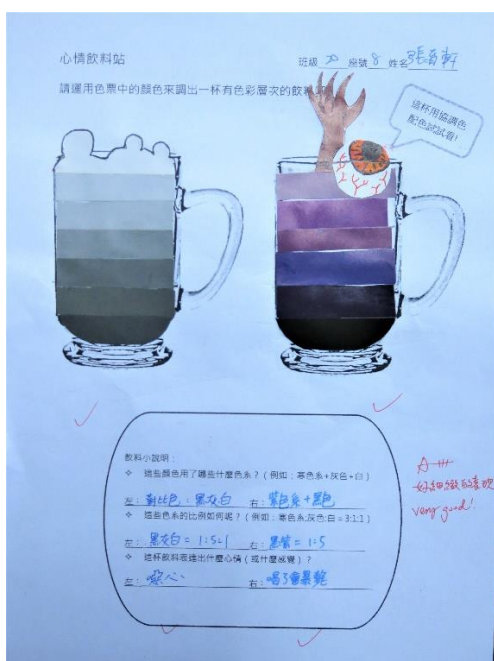 心情飲料站
班級 20 座號 8 姓名 張
請運用色票中的顏色來調出一杯有色彩層次的飲料
這杯用協調色
配色試試看!
飲料小說明：
❖ 這些顏色用了哪些什麼色系？(例如：寒色系+灰色+白)
左：對比色：黑灰白 右：紫色系+黑色
❖ 這些色系的比例如何呢？(例如：寒色系:灰色:白=3:1:1)
左：黑灰白=1:5:1 右：黑紫=1:5
❖ 這杯飲料表達出什麼心情(或什麼感覺)？
左：噁心 右：喝了會暴斃
A+++
very good!